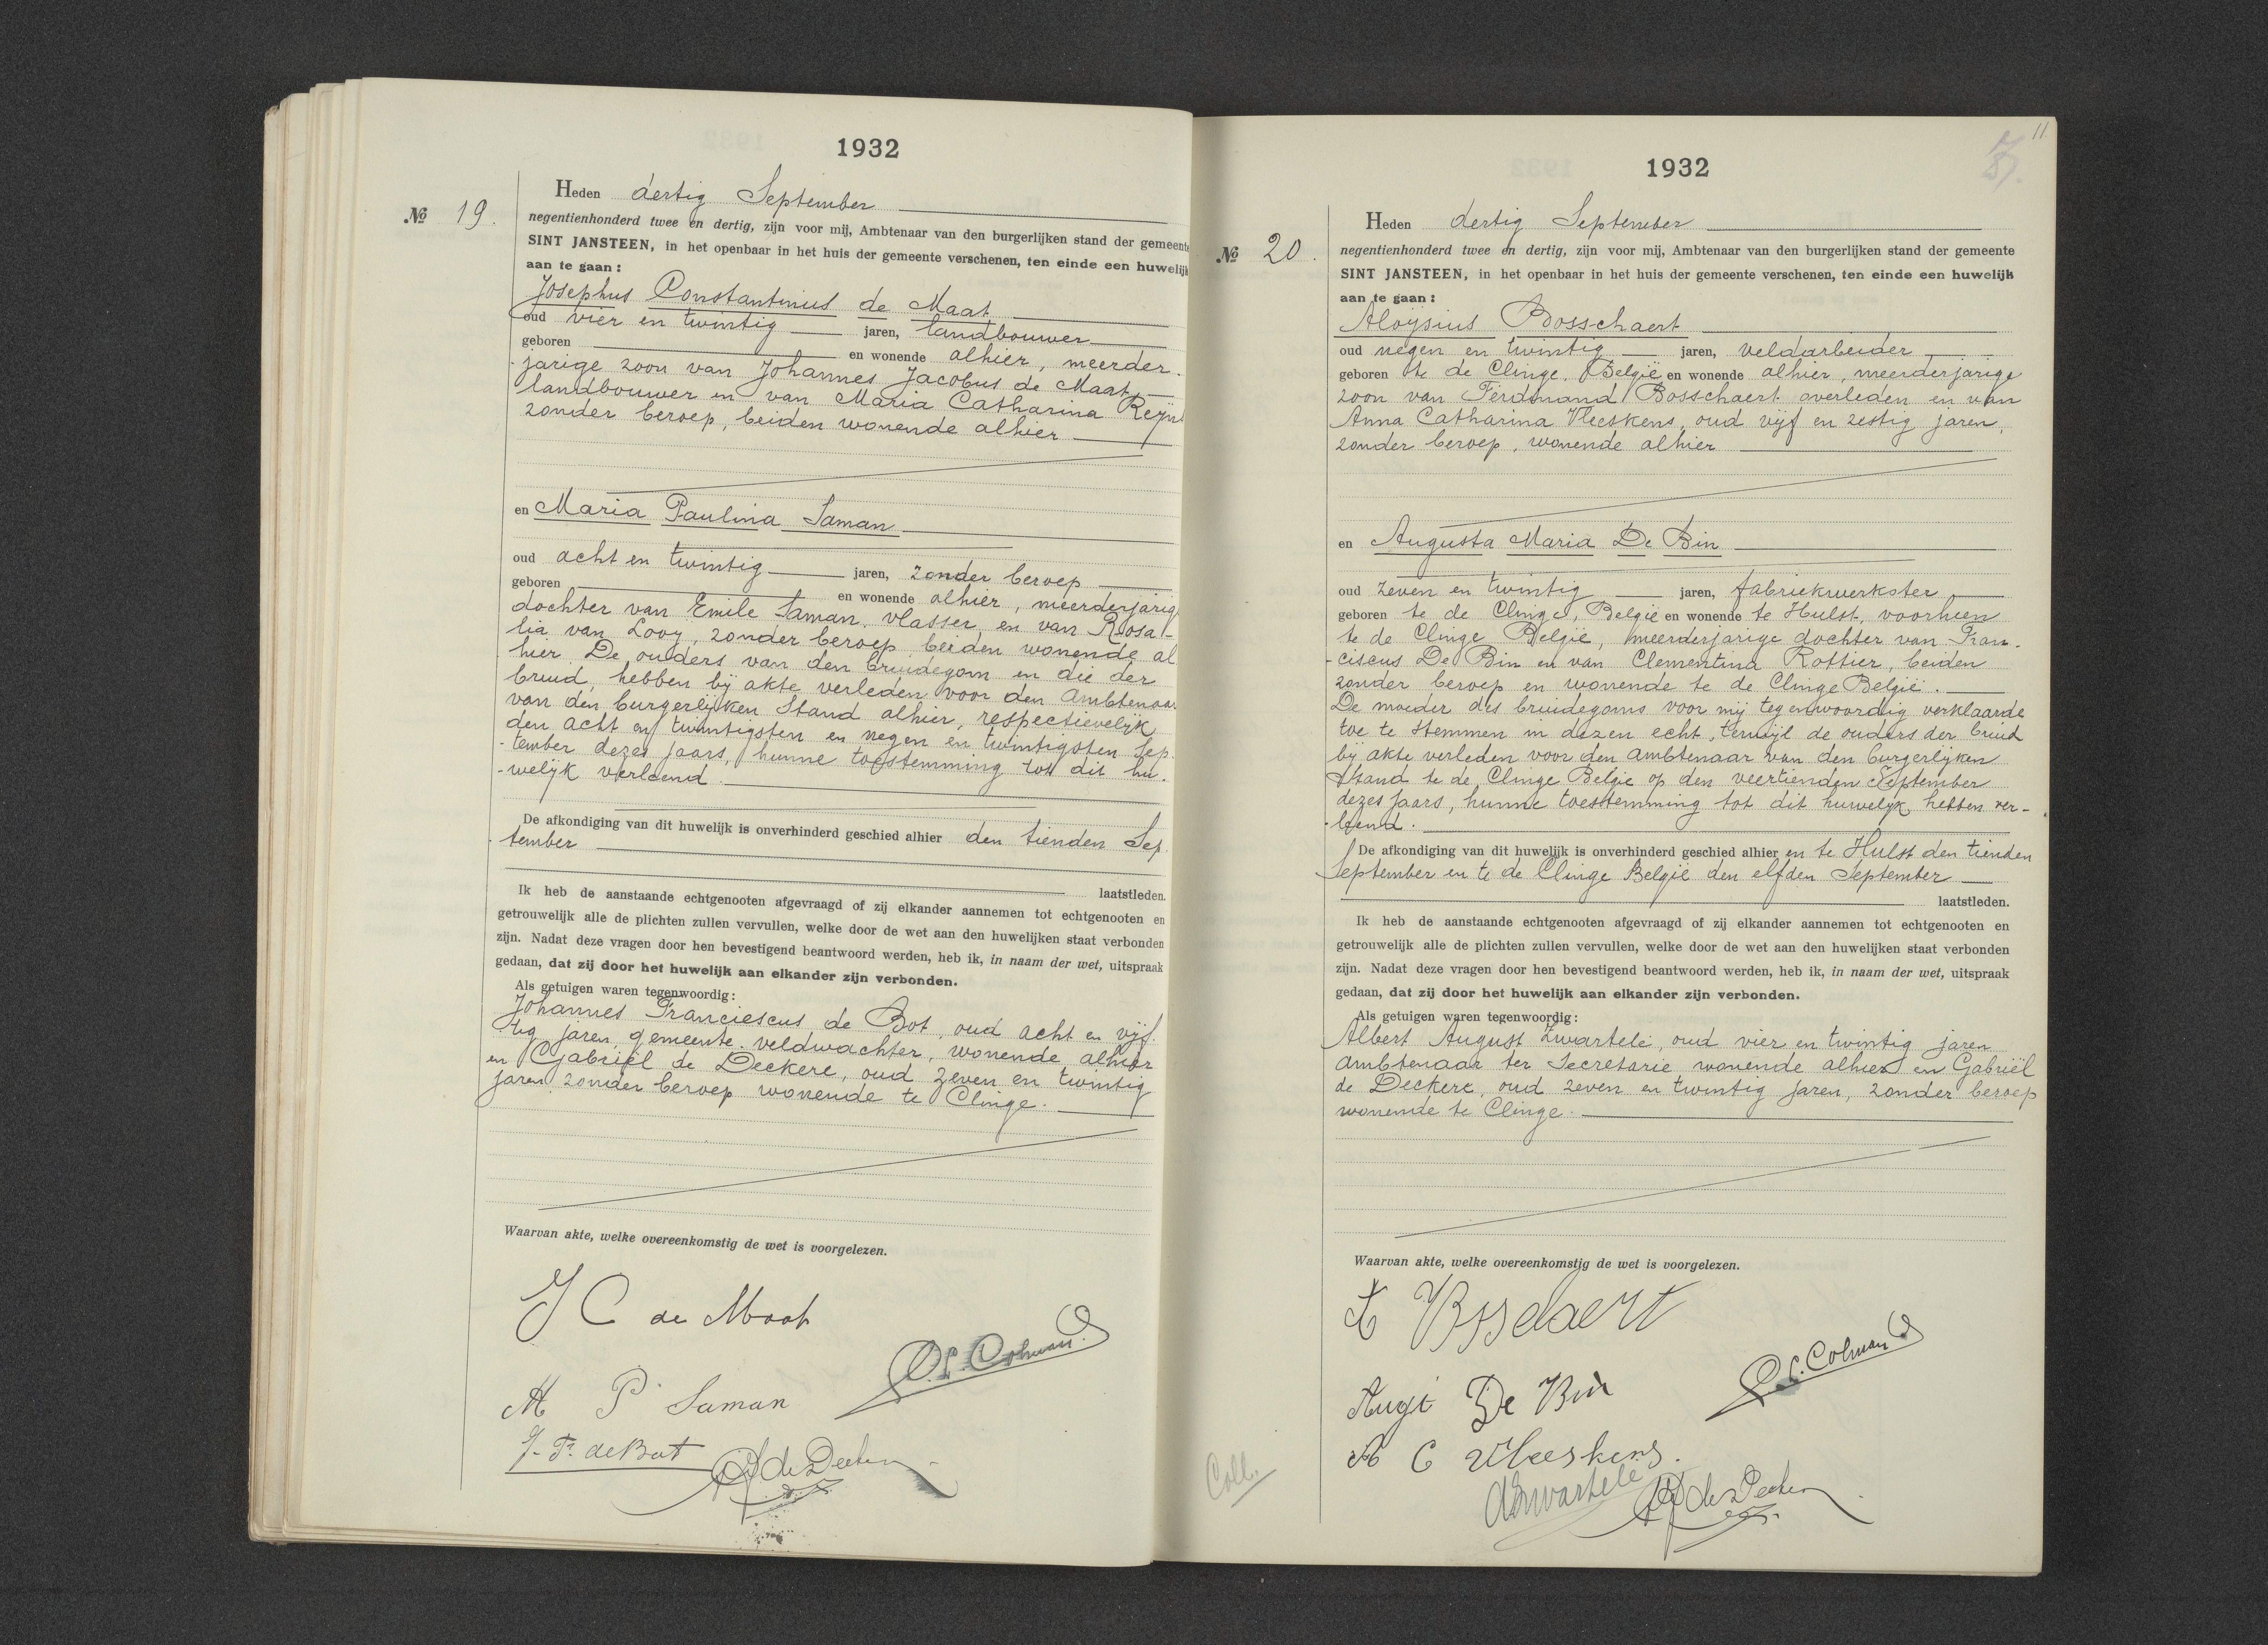 1932
Heden dertig September
No 19.
negentienhonderd twee en dertig, zijn voor mij, Ambtenaar van den burgerlijken stand der gemeente
SINT JANSTEEN, in het openbaar in het huis der gemeente verschenen, ten einde een huwelijk
aan te gaan:
Josephus Constantinus de Maat
oud vier en twintig jaren, landbouwer
geboren en wonende alhier, meerder-
jarige zoon van Johannes Jacobus de Maat,
landbouwer en van Maria Catharina
zonder beroep, beiden wonende alhier
en Maria Paulina Saman
oud acht en twintig jaren, zonder beroep
geboren en wonende alhier, meerderjarige
dochter van Emile Saman, vlasser, en van Rosa-
lia van Looy, zonder beroep, beiden wonende al
hier. De ouders van den bruidegom en die der
bruid, hebben bij akte verleden voor den Ambtenaar
van den burgerlijken Stand alhier, respectievelijk
den acht en twintigsten en negen en twintigsten Sep-
-tember dezes jaars, hunne toestemming tot dit hu-
-welijk verleend.
De afkondiging van dit huwelijk is onverhinderd geschied alhier den tienden Sep-
-tember
laatstleden.
Ik heb de aanstaande echtgenooten afgevraagd of zij elkander aannemen tot echtgenooten en
getrouwelijk alle de plichten zullen vervullen, welke door de wet aan den huwelijken staat verbonden
zijn. Nadat deze vragen door hen bevestigend beantwoord werden, heb ik, in naam der wet, uitspraak
gedaan, dat zij door het huwelijk aan elkander zijn verbonden.
Als getuigen waren tegenwoordig:
Johannes Franciescus de Bot, oud acht en vijf-
tig jaren, gemeente-veldwachter, wonende alhier
en Gabriël de Deckere, oud zeven en twintig
jaren zonder beroep wonende te Clinge.
Waarvan akte, welke overeenkomstig de wet is voorgelezen.
J C de Maat
Colman
M P Saman
J. Fr. de Bot
de Deckere
1932
11
Heden dertig September
No 20.
negentienhonderd twee en dertig, zijn voor mij, Ambtenaar van den burgerlijken stand der gemeente
SINT JANSTEEN, in het openbaar in het huis der gemeente verschenen, ten einde een huwelijk
aan te gaan:
Aloysius Bosschaert
oud negen en twintig jaren, veldarbeider
geboren te de Clinge, België en wonende alhier, meerderjarige
zoon van Ferdinand Bosschaert overleden en van
Anna Catharina Vleeskens, oud vijf en zestig jaren,
zonder beroep, wonende alhier
en Augusta Maria De Bin
oud zeven en twintig jaren, fabriekwerkster
geboren te de Clinge, België en wonende te Hulst, voorheen
te de Clinge België, meerderjarige dochter van Fran-
-ciscus De Bin en van Clementina Rottier, beiden
zonder beroep en wonende te de Clinge België.
De moeder des bruidegoms voor mij tegenwoordig verklaarde
toe te stemmen in dezen echt, terwijl de ouders der bruid
bij akte verleden voor den ambtenaar van den burgerlijken
Stand te de Clinge België op den veertienden September
dezes jaars, hunne toestemming tot dit huwelijk hebben ver-
-leend.
De afkondiging van dit huwelijk is onverhinderd geschied alhier en te Hulst den tienden
September en te de Clinge België den elfden September
laatstleden.
Ik heb de aanstaande echtgenooten afgevraagd of zij elkander aannemen tot echtgenooten en
getrouwelijk alle de plichten zullen vervullen, welke door de wet aan den huwelijken staat verbonden
zijn. Nadat deze vragen door hen bevestigend beantwoord werden, heb ik, in naam der wet, uitspraak
gedaan, dat zij door het huwelijk aan elkander zijn verbonden.
Als getuigen waren tegenwoordig:
Albert August Zwartelé, oud vier en twintig jaren
ambtenaar ter Secretarie wonende alhier en Gabriël
de Deckere, oud zeven en twintig jaren, zonder beroep
wonende te Clinge.
Waarvan akte, welke overeenkomstig de wet is voorgelezen.
Colman
De Bin
A C Vleeskens.
Zwartelé
de Deckere
Coll.